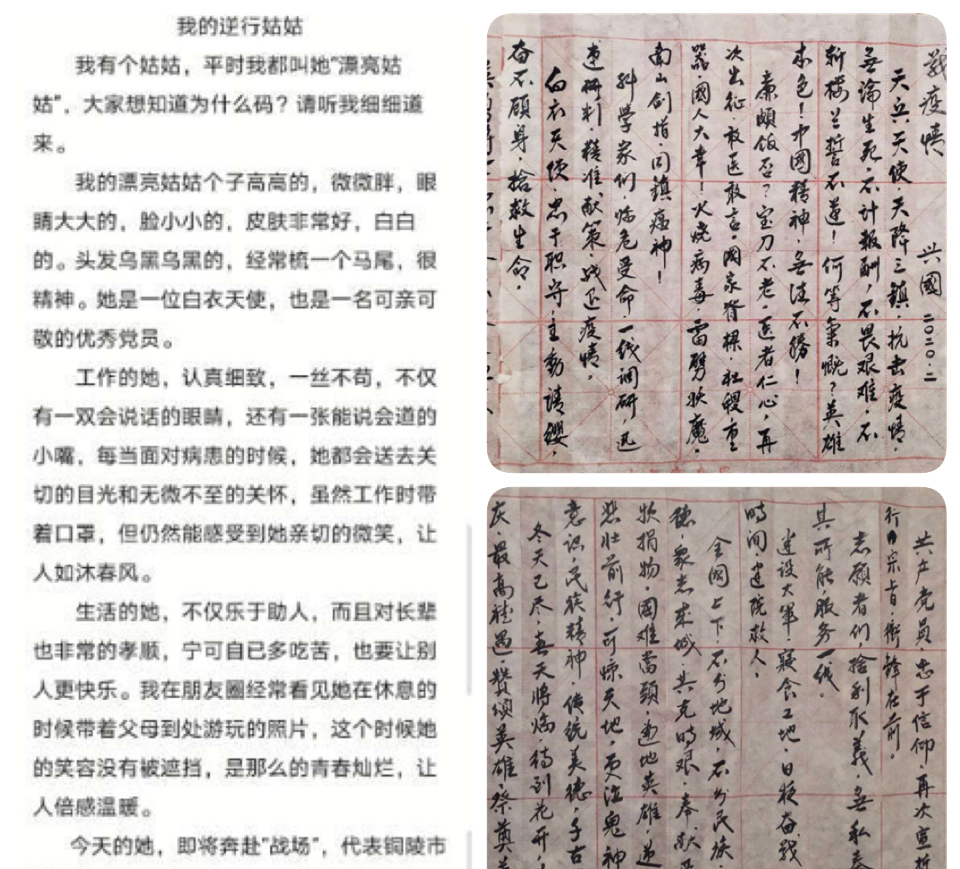 我的逆行姑姑
我有个姑姑，平时我都叫她“漂亮姑
姑”，大家想知道为什么码？请听我细细道
来。
我的漂亮姑姑个子高高的，微微胖，眼
睛大大的，脸小小的，皮肤非常好，白白
的。头发乌黑乌黑的，经常梳一个马尾，很
精神。她是一位白衣天使，也是一名可亲可
敬的优秀党员。
工作的她，认真细致，一丝不苟，不仅
有一双会说话的眼睛，还有一张能说会道的
小嘴，每当面对病患的时候，她都会送去关
切的目光和无微不至的关怀，虽然工作时带
着口罩，但仍然能感受到她亲切的微笑，让
人如沐春风。
生活的她，不仅乐于助人，而且对长辈
也非常的孝顺，宁可自已多吃苦，也要让别
人更快乐。我在朋友圈经常看见她在休息的
时候带着父母到处游玩的照片，这个时候她
的笑容没有被遮挡，是那么的青春灿烂，让
人倍感温暖。
今天的她，即将奔赴“战场”，代表铜陵市
战疫情 兴國 二〇二〇.二
天兵天使，天降三鎮，抗击疫情，
無論生死，不計報酬，不畏艰难，不
斬樓兰誓不还！何等氣慨？英雄
本色！中國精神，無往不勝！
廉頗饭否？宝刀不老，医者仁心，再
次出征，敢医敢言國家脊樑，社稷重
器，國人大幸！火烧病毒，雷劈妖魔，
南山剑指，同鎮瘟神！
科学家们，临危受命，一线调研，迅
速研判，精准献策，战退疫情。
白衣天使，忠于职守，主動請纓，
奋不顾身，抢救生命。
共产党员，忠于信仰，再次宣
行为宗旨，衝鋒在前。
志願者们，捨利取義，無私奉
其所能，服务一线。
建设大軍，寢食工地，日夜奋战
時间，建院救人。
全國上下，不分地域，不分民族，
德，眾志成城，共克時艰，奉献
款捐物，國难當頭，遍地英雄，逆
悲壮前行，可惊天地，更泣鬼神
意识，民族精神，传统美德，千古
冬天已尽，春天将临，待到花开，
庆，最高禮遇，赞颂英雄，祭奠